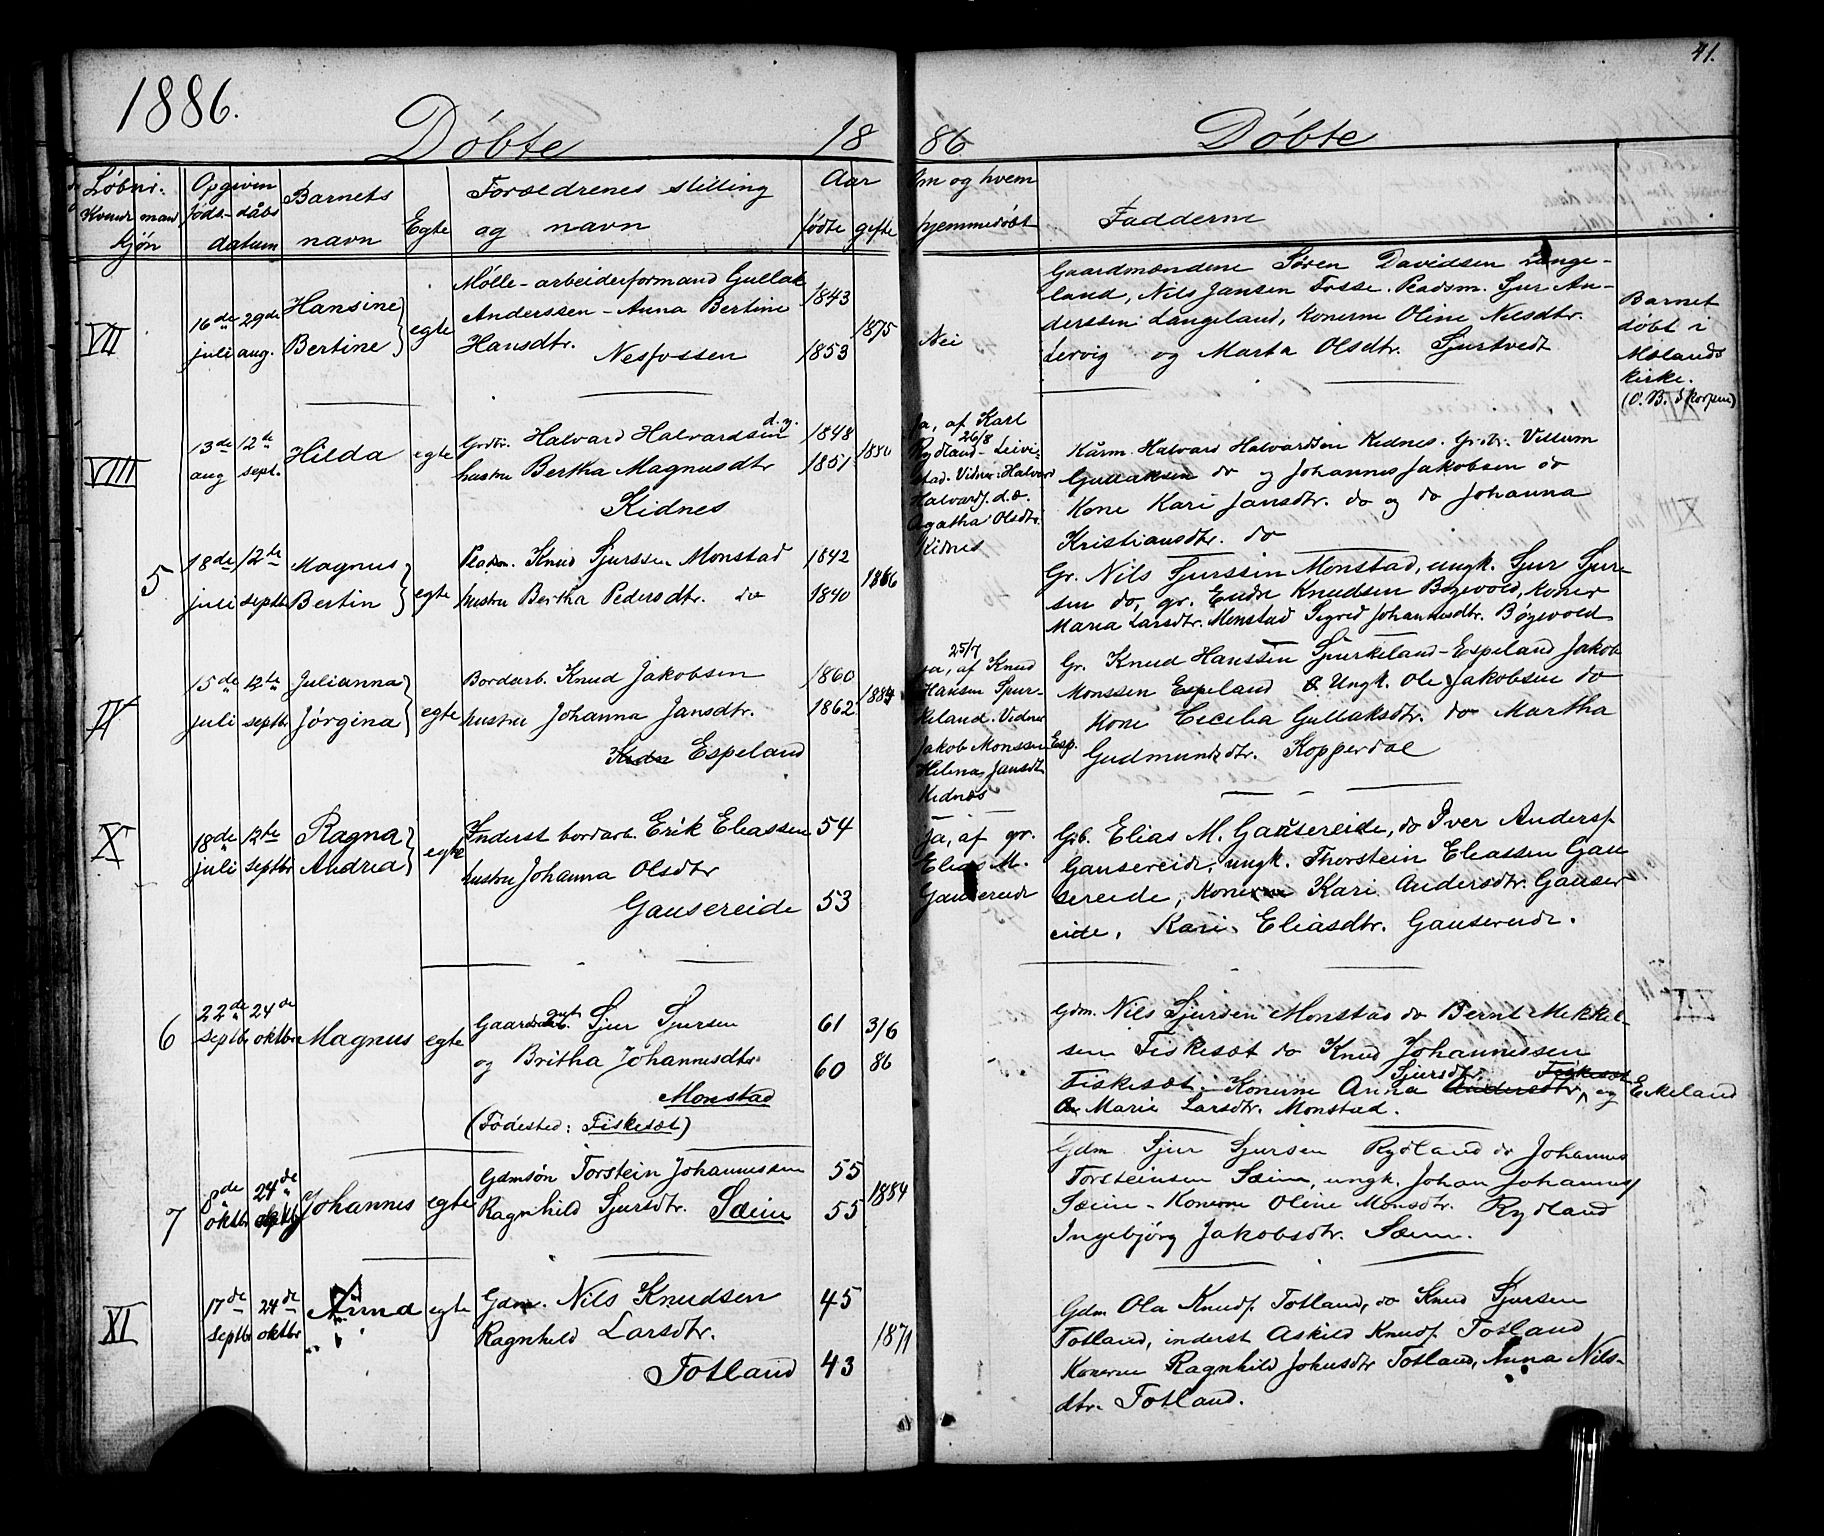 41.
1886.
Døbte 18 86 Døbte
Løbnr. Kvin mand kjøn
Opgiven føds- dåbs datum
Barnets navn
Egte
Forældrenes stilling og navn
Aar fødte gifte
Om og hvem hjemmedøbt
Fadderne
VII
16de juli
29de aug.
Hansine
Bertine
egte
Mølle-arbeiderformand Gullak
Anderssen - Anna Bertine
Hansdtr.
Nesfossen
1843
1853
1875
Nei
Gaardmændene Søren Davidsen Lange-
land, Nils Jansen Fosse. Pladsm. Sjur An-
derssen Langeland, Konerne Oline Nilsdtr.
Lervig og Marta Olsdtr. Sjurtvedt
Barnet
døbt i
Mælands
kirke.
(O. B. Skorpen)
VIII
13de aug
12te sept.
Hilda
egte
Grdbr. Halvard Halvardsen d.y.
hustru Bertha Magnusdtr
Kidnes
1848
1851
1880
Ja, af Karl
26/8
Rydland - Leivi-
stad. Vidner: Halvor
Halvards. d.æ.
Agatha Olsdtr.
Kidnes
Kårm. Halvard Halvardsen Kidnes. Grbr. Villum
Gullaksen do og Johannes Jakobsen do
Kone Kari Jansdtr. do og do Johanna
Kristiansdtr. do
5
18de juli
12te septb
Magnus
Bertin
egte
Pladsm. Knud Sjurssen Monstad
hustru Bertha Pedersdtr. do
1842
1840
1866
Gr. Nils Sjurssen Monstad, ungk. Sjur Sjur-
sen do, gr. Endre Knudsen Bøyevold, Koner
Maria Larsdtr. Monstad Sigrid Johannesdtr. Bøyevold
IX
15de juli
12te septb
Julianna
Jørgina
egte
Bordarb. Knud Jakobsen
hustru Johanna Jansdtr.
Kidn Espeland
1860
1862
1884
25/7
Ja, af Knud
Hansen Spur-
keland. Vidner
Jakob Monssen Esp.
Helena Jansdtr
Kidnes
Gr. Knud Hanssen Spurkeland - Espeland Jakob
Monssen Espeland & Ungk. Ole Jakobsen do
Kone Cecilia Gullaksdtr. do Martha
Gudmundsdtr. Kopperdal
X
18de juli
12te septbr
Ragna
Andrea
egte
Inderst bordarb. Erik Eliassen
hustru Johanna Olsdtr
Gausereide
54
53
Ja, af gr.
Elias M.
Gausereide
Grb. Elias M. Gausereide, do Iver Anders.
Gausereide, ungk. Thorstein Eliassen Gau
sereide, Konerne Kari Andersdtr. Gauser-
eide, Kari Eliasdtr. Gausereide.
6
22de septbr
24de oktbr
Magnus
egte
Gaard Sjur Sjursen
og Britha Johannesdtr
Monstad
(Fødested: Fiskesæt)
61
60
3/6
86
Gdm. Nils Sjursen Monstad do Bernt Mikkel-
sen Fiskesæt do Knud Johannessen
Fiskesæt. Konerne Anna Andersdtr, Sjursdtr. Fiskesæt og Eikeland
Marie Larsdtr. Monstad.
7
8de oktbr
24de
Johannes
egte
Gdmsøn Torstein Johannessen
Ragnhild Sjursdtr. Sæim
55
55
1884
Gdm Sjur Sjursen Rydland do Johannes
Torsteinsen Sæim, ungk. Johan Johannes
Sæim - Konerne Oline Monsdtr. Rydland
Ingebjørg Jakobsdtr. Sæim.
XI
17de septbr
24de oktbr
Anna
egte
Gdm. Nils Knudsen
Ragnhild Larsdtr.
Totland
45
43
1871
Gdm Ola Knuds. Totland, do Knud Sjursen
Totland, inderst Askild Knuds. Totland
Konerne Ragnhild Johnsdtr Totland, Anna Nils-
dtr. Totland.